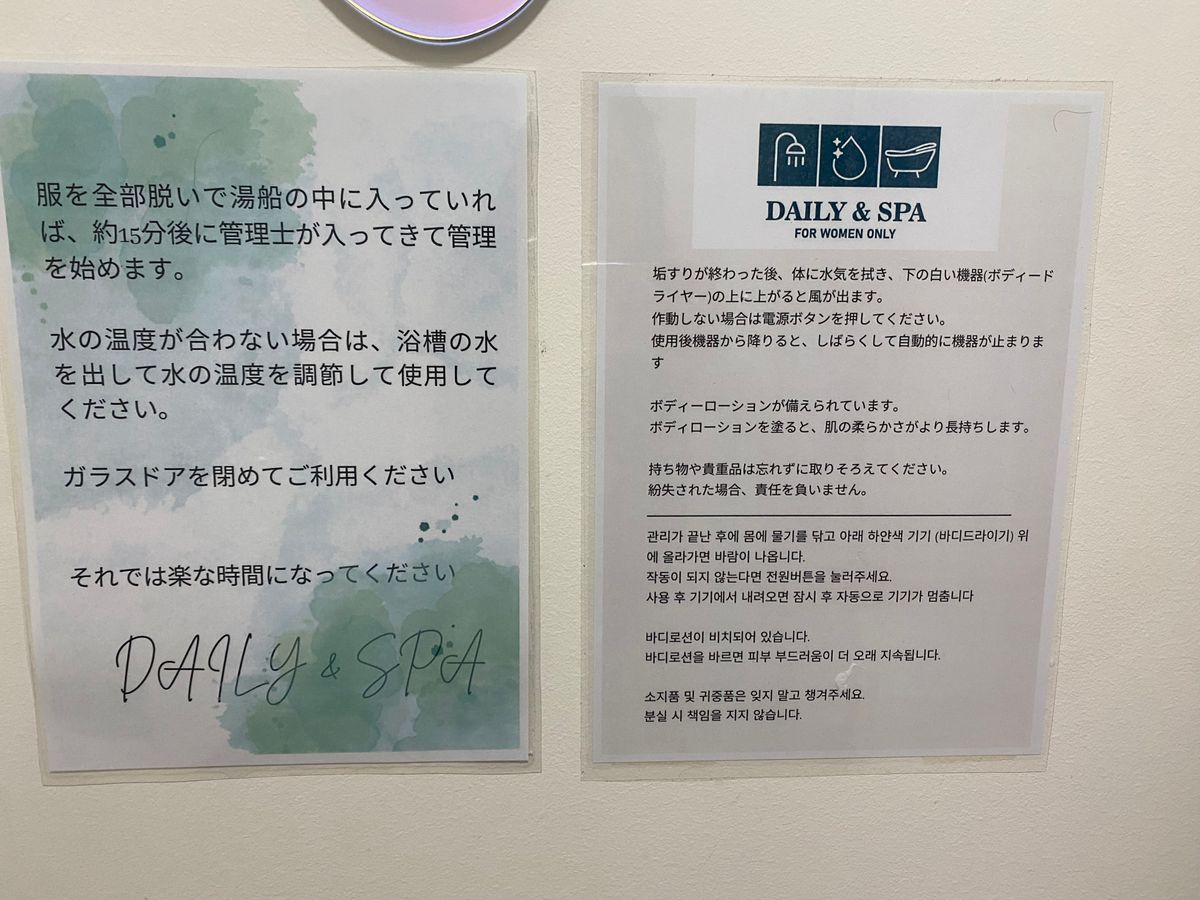 服を全部脱いで湯船の中に入っていれ
ば、約15分後に管理士が入ってきて管理
を始めます。
水の温度が合わない場合は、浴槽の水
を出して水の温度を調節して使用して
ください。
ガラスドアを閉めてご利用ください
それでは楽な時間になってください
DAILY & SPA
DAILY & SPA
FOR WOMEN ONLY
垢すりが終わった後、体に水気を拭き、下の白い機器(ボディード
ライヤー)の上に上がると風が出ます。
作動しない場合は電源ボタンを押してください。
使用後機器から降りると、しばらくして自動的に機器が止まりま
す
ボディーローションが備えられています。
ボディローションを塗ると、肌の柔らかさがより長持ちします。
持ち物や貴重品は忘れずに取りそろえてください。
紛失された場合、責任を負いません。
관리가 끝난 후에 몸에 물기를 닦고 아래 하얀색 기기 (바디드라이기) 위
에 올라가면 바람이 나옵니다.
작동이 되지 않는다면 전원버튼을 눌러주세요.
사용 후 기기에서 내려오면 잠시 후 자동으로 기기가 멈춤니다
바디로션이 비치되어 있습니다.
바디로션을 바르면 피부 부드러움이 더 오래 지속됩니다.
소지품 및 귀중품은 잊지 말고 챙겨주세요.
분실 시 책임을 지지 않습니다.